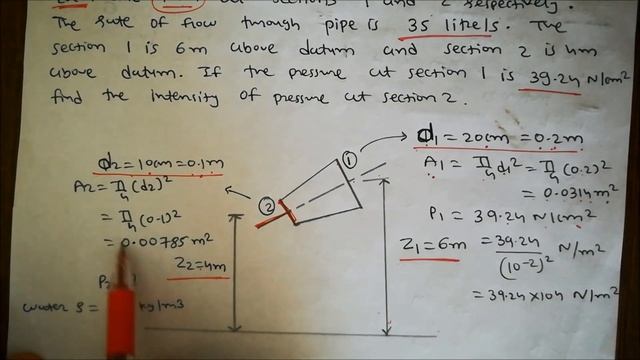 at sections 1 and 2 respectively.
The rate of flow through pipe is 35 lite/s. The
section 1 is 6m above datum and section 2 is 4m
above datum. If the pressure at section 1 is 39.24 N/cm²
find the intensity of pressure at section 2.
d2 = 10cm = 0.1m
A2 = π/4 (d2)²
= π/4 (0.1)²
= 0.00785 m²
Z2 = 4m
P2
water ρ = kg/m3
②
①
d1 = 20cm = 0.2m
A1 = π/4 d1² = π/4 (0.2)²
= 0.0314 m²
P1 = 39.24 N/cm²
Z1 = 6m = 39.24/(10-2)² N/m²
= 39.24 x104 N/m²